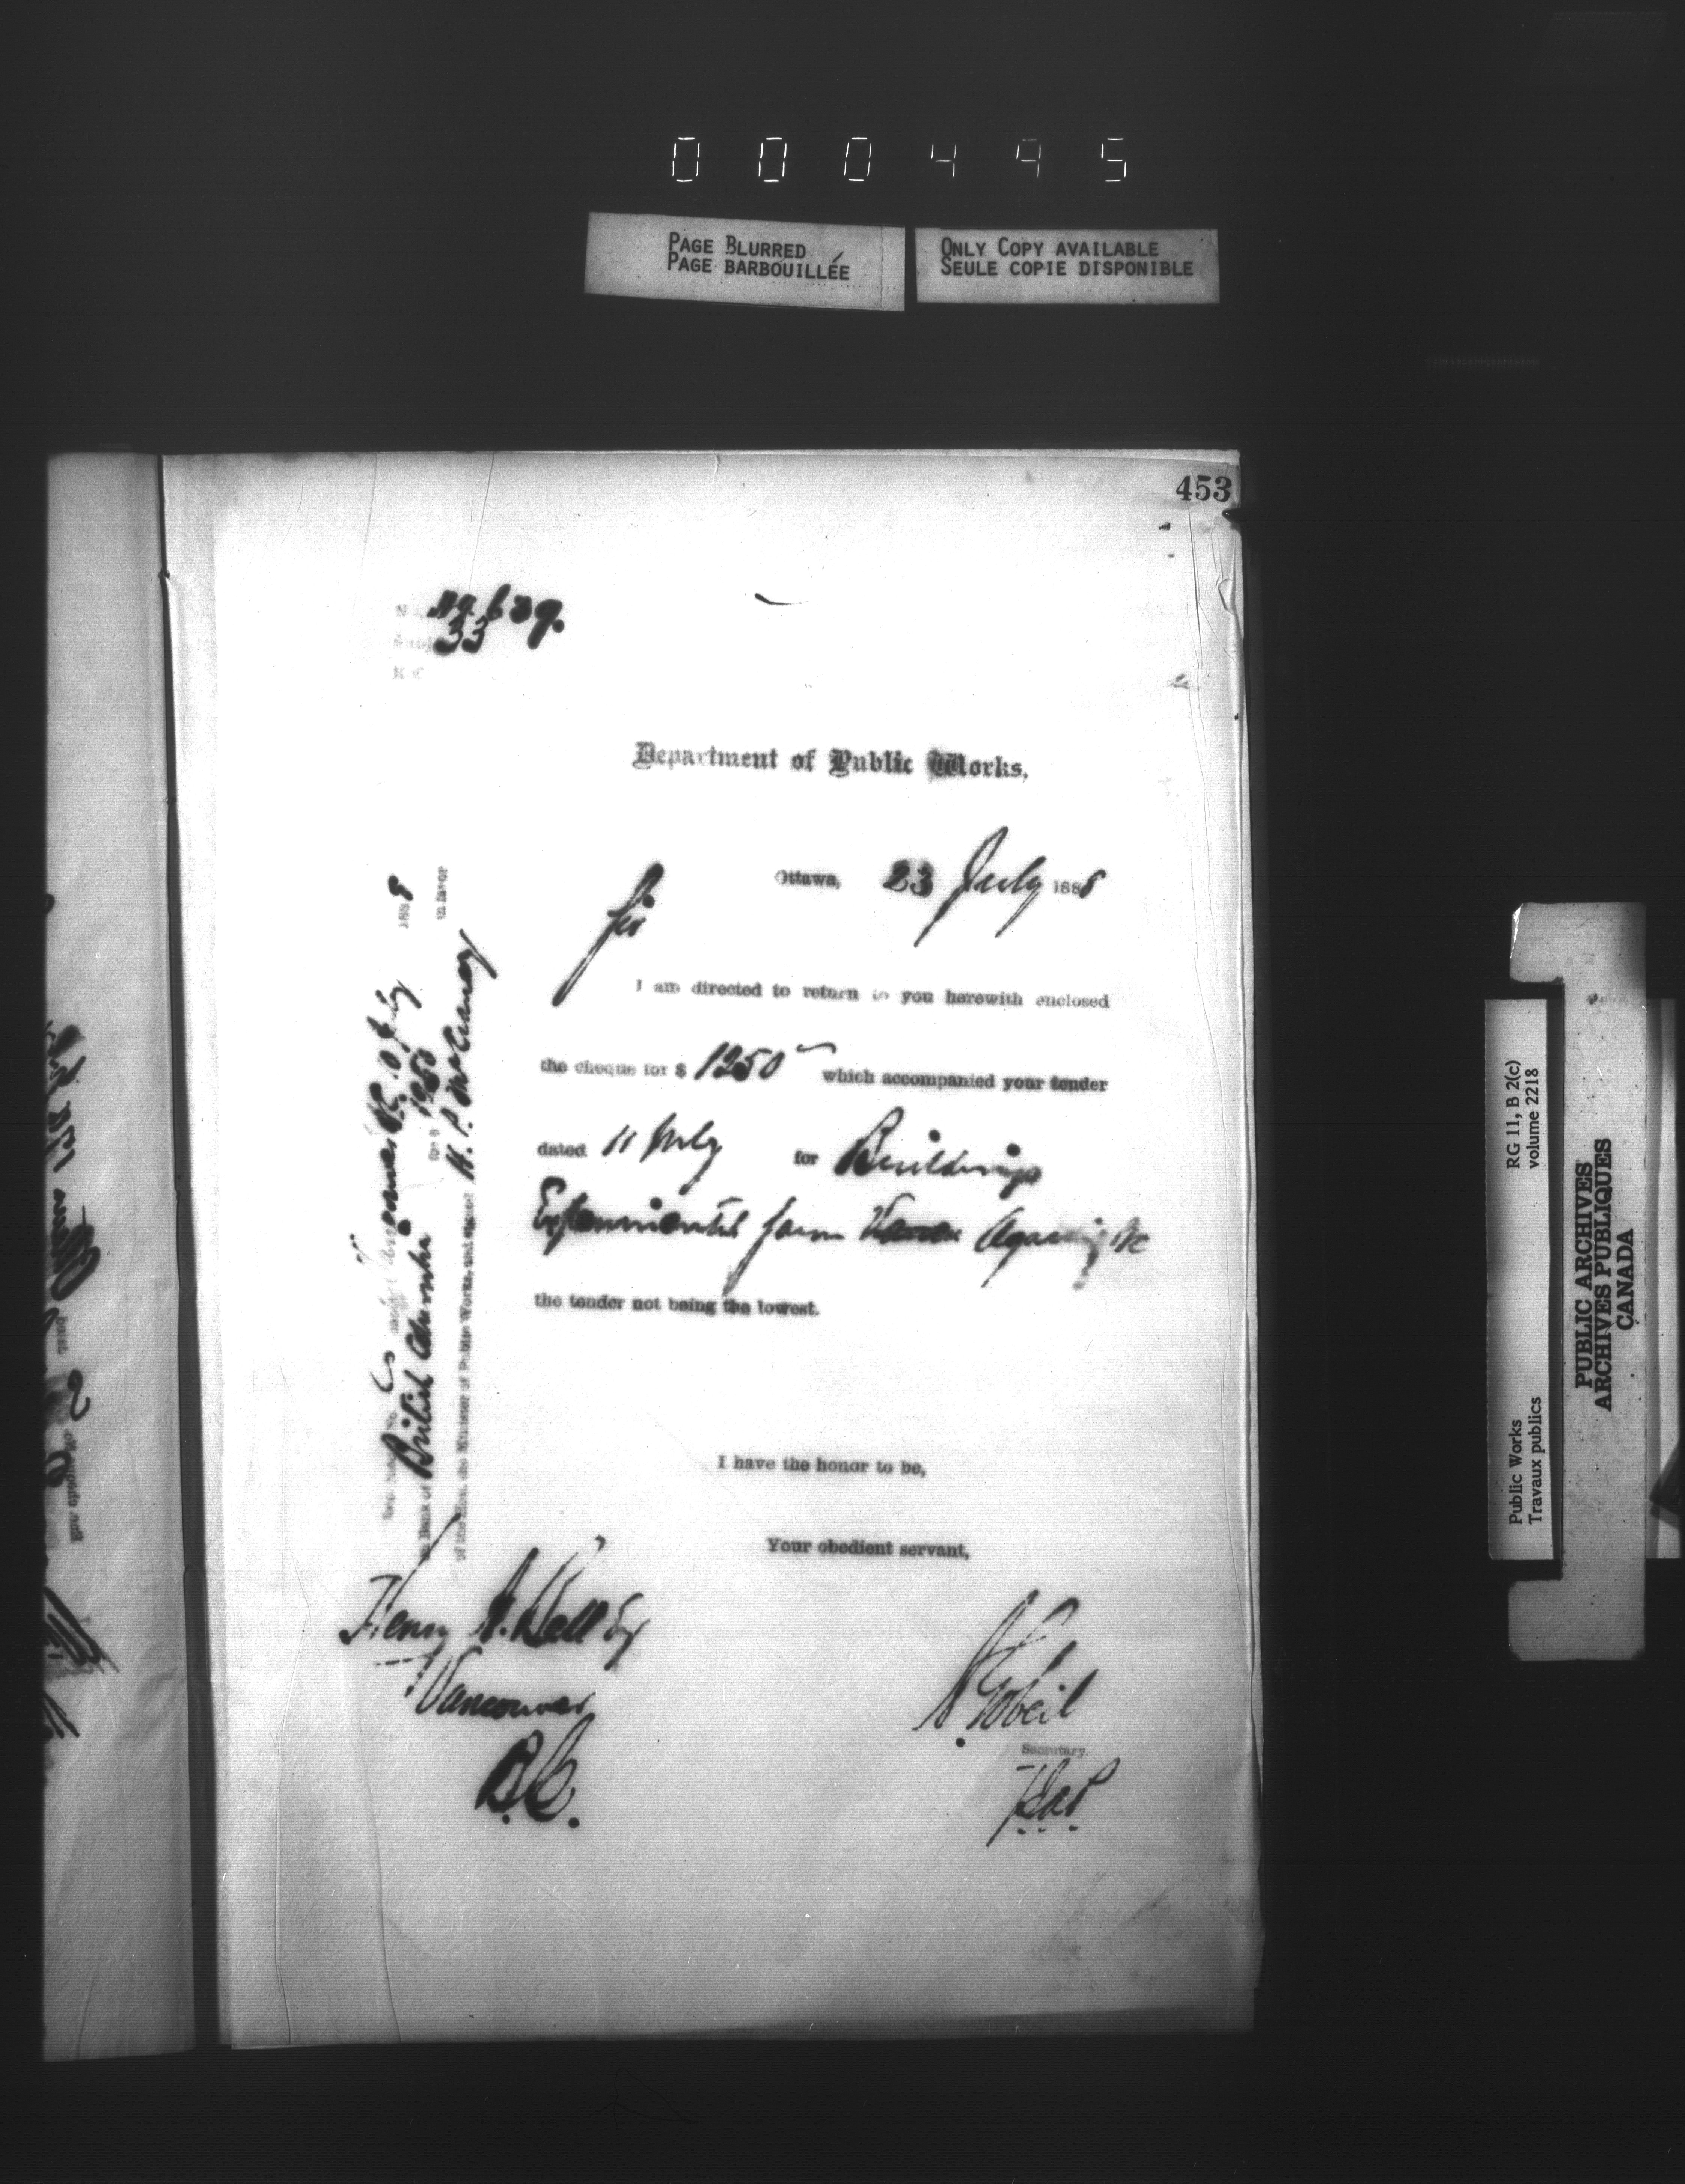 000495
PAGE BLURRED
PAGE BARBOUILLÉE
ONLY COPY AVAILABLE
SEULE COPIE DISPONIBLE
453
No. 639.
Subj. 33
Department of Public Works,
Ottawa, 23 July 1888
Sir
I am directed to return to you herewith enclosed
the cheque for $ 1250 which accompanied your tender
dated 11 July for Buildings
Experimental farm Agassiz BC
the tender not being the lowest.
I have the honor to be,
Your obedient servant,
Henry A. Bell Esq
Vancouver
B.C.
A Gobeil
Secretary.
1888
Vancouver BC 10 July
on Bank of British Columbia for $ 1250 in favor
of the Hon. the Minister of Public Works, and signed H. P. McCraney
Public Works
Travaux publics
RG 11, B 2(c)
volume 2218
PUBLIC ARCHIVES
ARCHIVES PUBLIQUES
CANADA